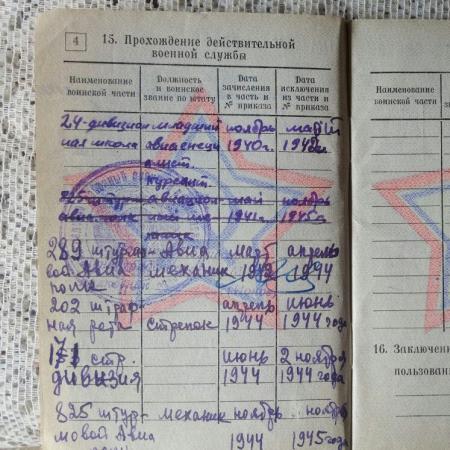 4
15. Прохождение действительной
военной службы
Наименование
воинской части
Должность
и воинское
звание по штату
Дата
зачисления
в часть и
№ приказа
Дата
исключения
из части и
№ приказа
24-дивизион младший ноябрь
ная школа авиаспеци 1940г.
курсант.
май ноябрь
1941г. 1945г
289 штурмо- Авиа март апрель
вой Авиа механик 1944
202 штраф- апрель июнь
ная рота стрелок 1944 1944 года
171 стр. июнь 2 ноября
дивизия 1944 1944 года
825 штур- механик ноябрь ноябрь
мовой Авиа 1944 1945 года
Наименование
воинской части
16. Заключени
пользован